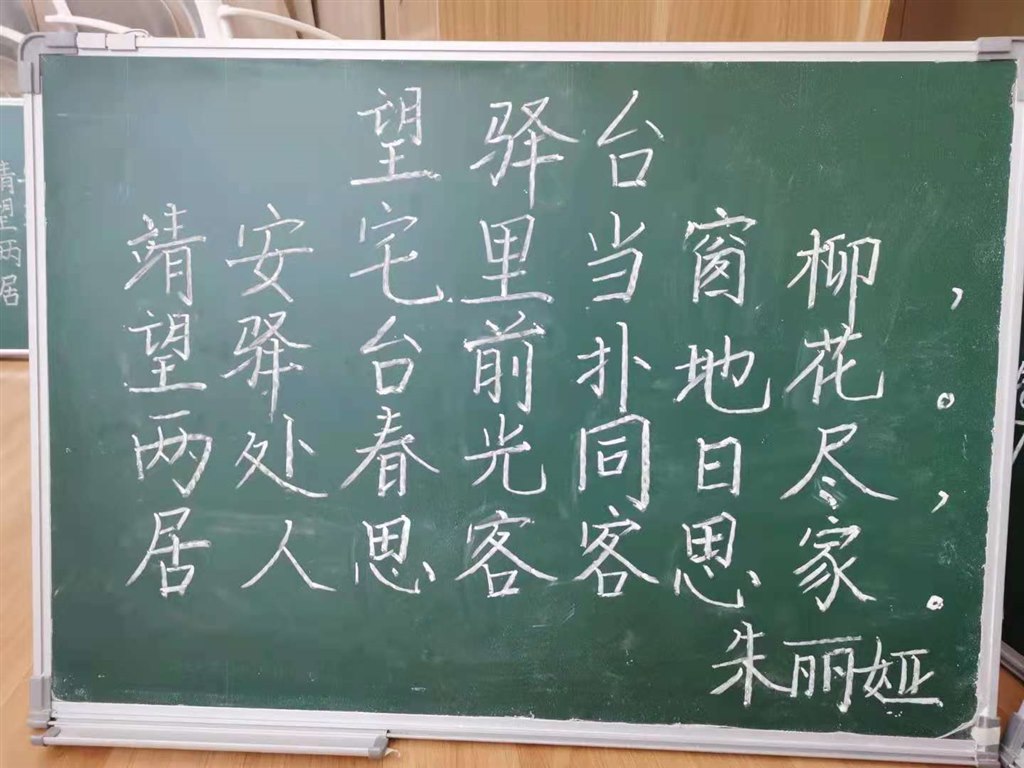 望驿台
靖安宅里当窗柳，
望驿台前扑地花。
两处春光同日尽，
居人思客客思家。
朱丽娅
靖望两居